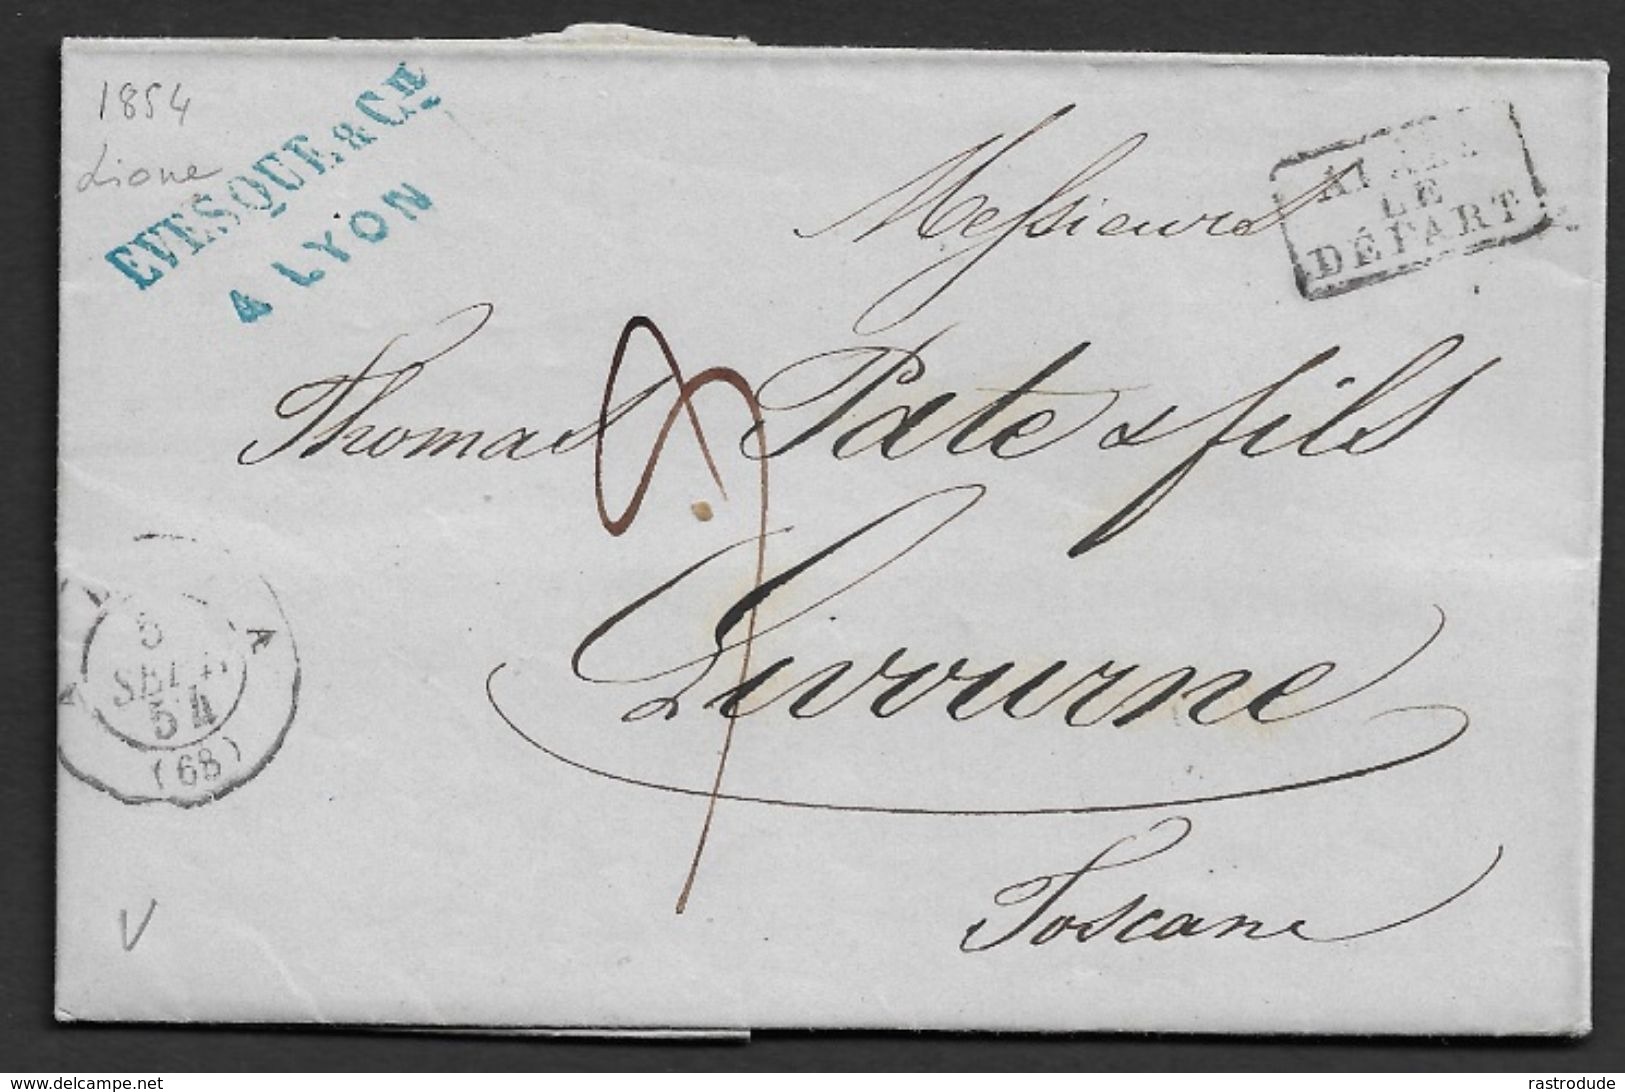 1854
Lione
EVESQUE & Cie
A LYON
LE
DÉPART
Messieurs
Thomas Pate & fils
Livourne
Toscane
5
SEPT
54
(68)
V
www.delcampe.net
rastrodude